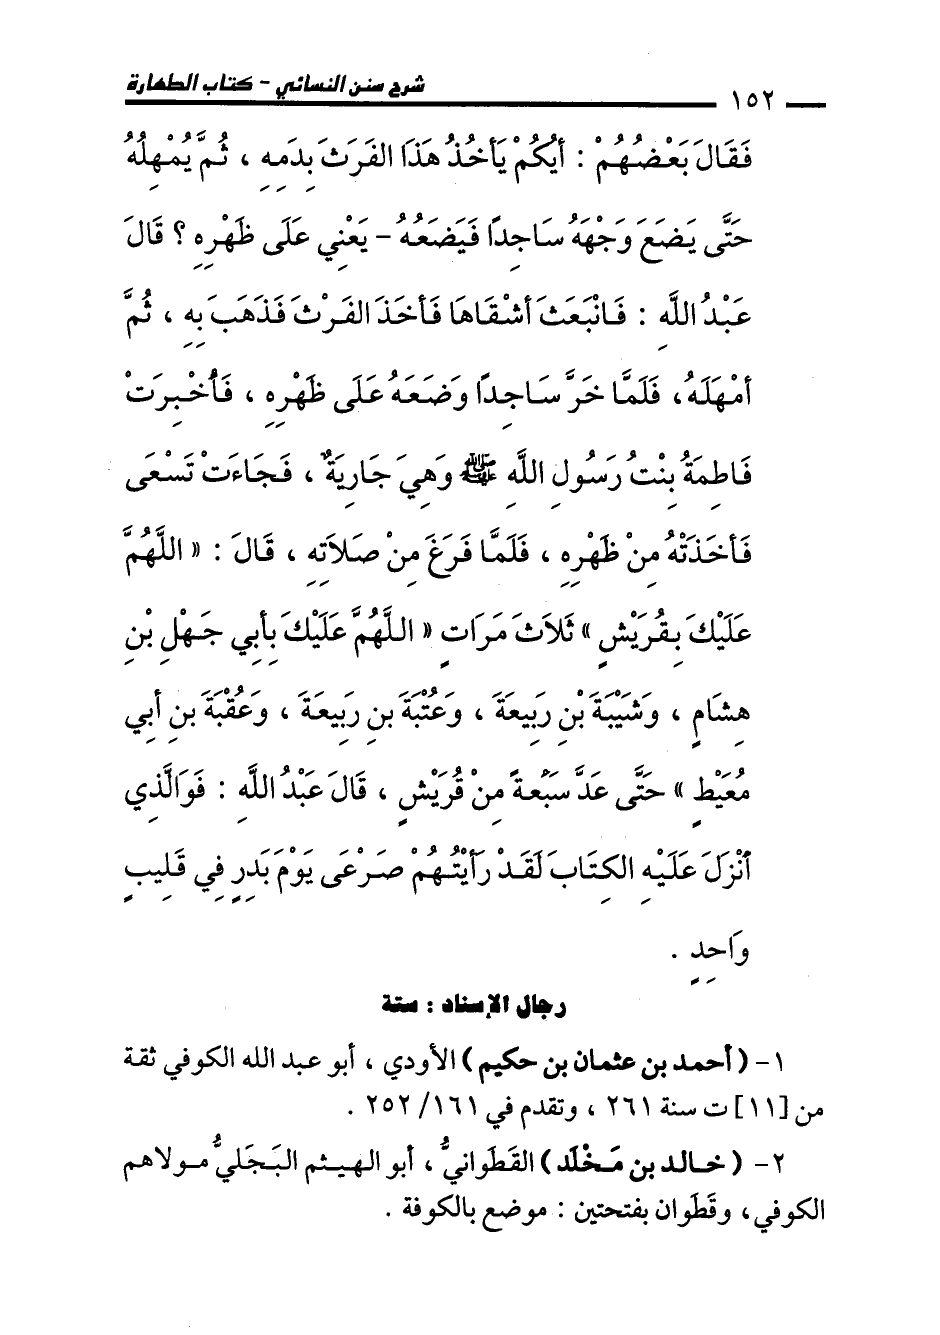 شرح سنن النسائي - كتاب الطهارة
١٥٢
فَقَالَ بَعْضُهُمْ : أيُكُمْ يَأخُذُ هَذَا الفَرَثَ بِدَمِهِ ، ثُمَّ يُمْهِلُهُ
حَتَّى يَضَعَ وَجْهَهُ سَاجِداً فَيَضَعُهُ - يَعْنِي عَلَى ظَهْرِهِ ؟ قَالَ
عَبْدُ اللَّهِ : فَانْبَعَثَ أشْقَاهَا فَأخَذَ الفَرْثَ فَذَهَبَ بِهِ ، ثُمَّ
أمْهَلَهُ، فَلَمَّا خَرَّ سَاجِداً وَضَعَهُ عَلَى ظَهْرِهِ ، فَأُخْبِرَتْ
فَاطِمَةُ بِنْتُ رَسُولِ اللَّهِ ﷺ وَهِيَ جَارِيَةٌ ، فَجَاءَتْ تَسْعَى
فَأخَذَتْهُ مِنْ ظَهْرِهِ ، فَلَمَّا فَرَغَ مِنْ صَلاَتِهِ ، قَالَ : « اللَّهُمَّ
عَلَيْكَ بِقُرَيْشٍ » ثَلاَثَ مَرَاتٍ « اللَّهُمَّ عَلَيْكَ بِأبِي جَهْلِ بْنِ
هِشَامٍ ، وَشَيْبَةَ بْنِ رَبِيعَةَ ، وَعُتْبَةَ بنِ رَبِيعَةَ ، وَعُقْبَةَ بنِ أبِي
مُعَيْطٍ » حَتَّى عَدَّ سَبْعَةً مِنْ قُرَيْشٍ ، قَالَ عَبْدُ اللَّهِ : فَوَالَّذِي
أنْزَلَ عَلَيْهِ الكِتَابَ لَقَدْ رَأيْتُهُمْ صَرْعَى يَوْمَ بَدْرٍ فِي قَلِيبٍ
وَاحِدٍ .
رجال الإسناد : ستة
١- (أحمد بن عثمان بن حكيم) الأودي ، أبو عبد الله الكوفي ثقة
من [١١] ت سنة ٢٦١ ، وتقدم في ١٦١/ ٢٥٢ .
٢- (خالد بن مَخْلَد) القَطَوانيُّ ، أبو الهيثم البَجَليُّ مولاهم
الكوفي، وقَطَوان بفتحتين : موضع بالكوفة .